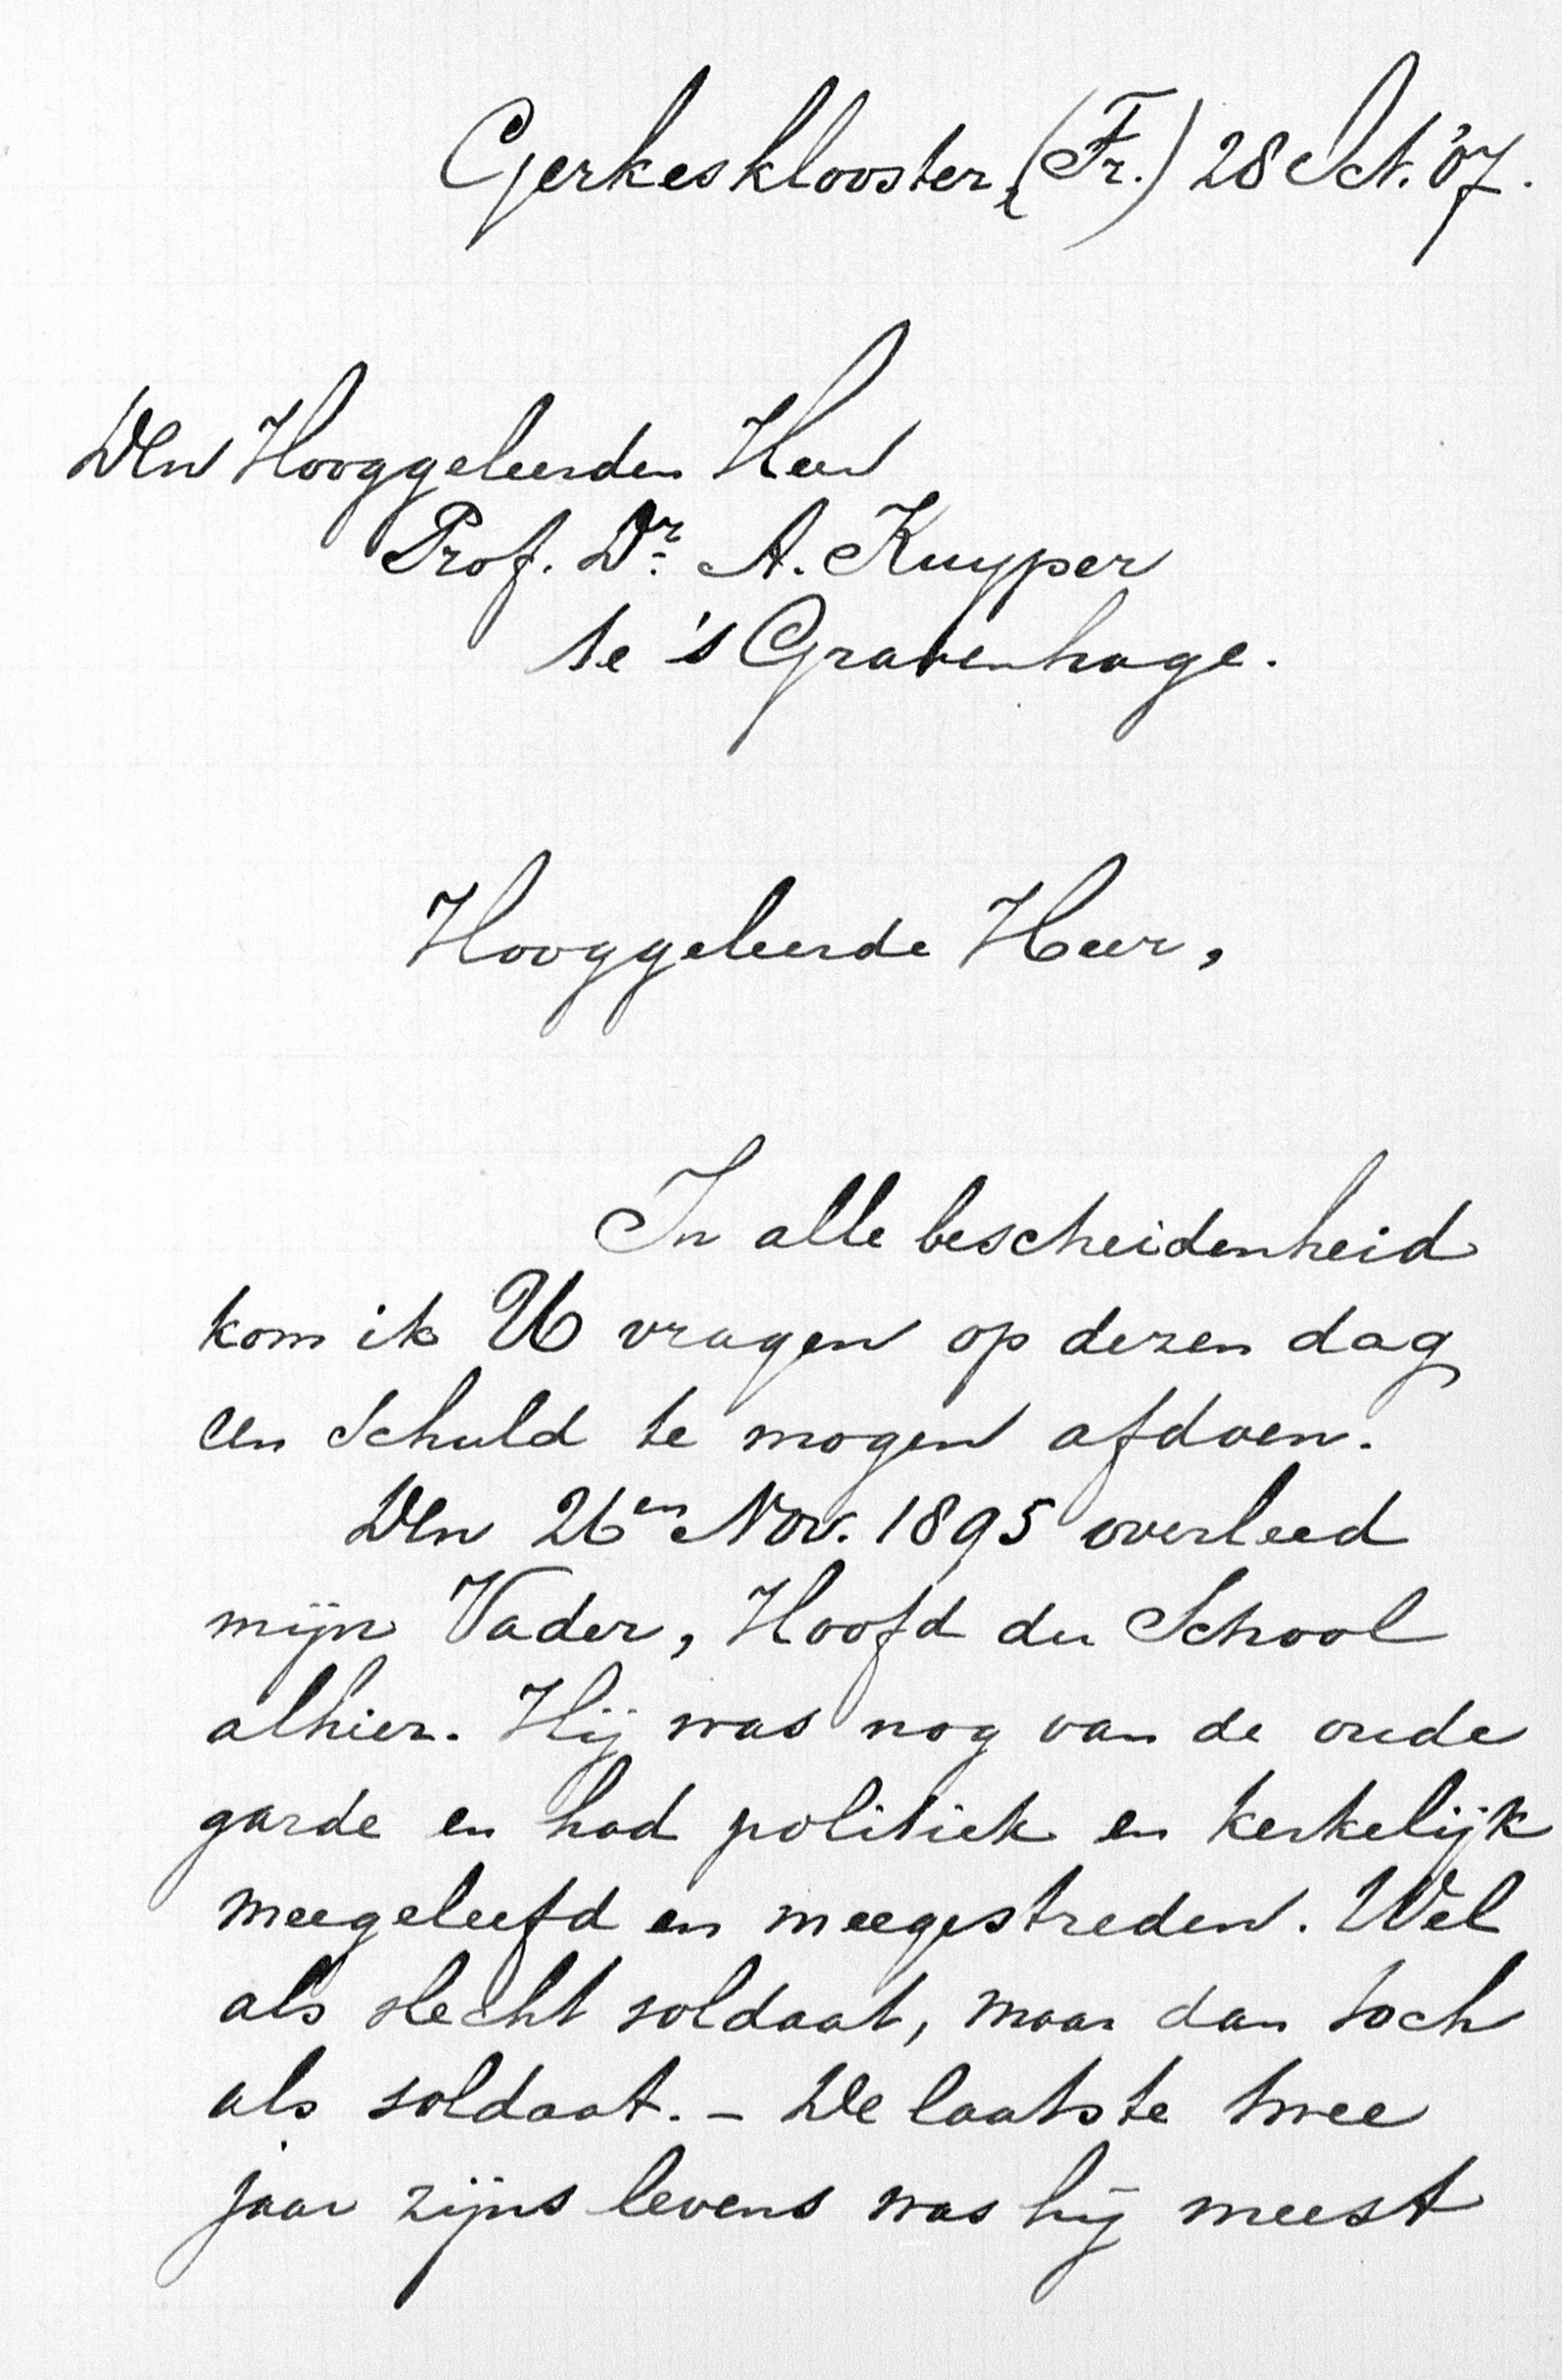 Gerkesklooster, (Fr.) 28 Oct. '07.
Den Hooggeleerden Heer
Prof. Dr. A. Kuyper
te 's Gravenhage.
Hooggeleerde Heer,
In alle bescheidenheid
kom ik U vragen op dezen dag
een schuld te mogen afdoen.
Den 26en Nov. 1895 overleed
mijn Vader, Hoofd der School
alhier. Hij was nog van de oude
garde en had politiek en kerkelijk
meegeleefd en meegestreden. Wel
als slecht soldaat, maar dan toch
als soldaat. – De laatste twee
jaar zijns levens was hij meest